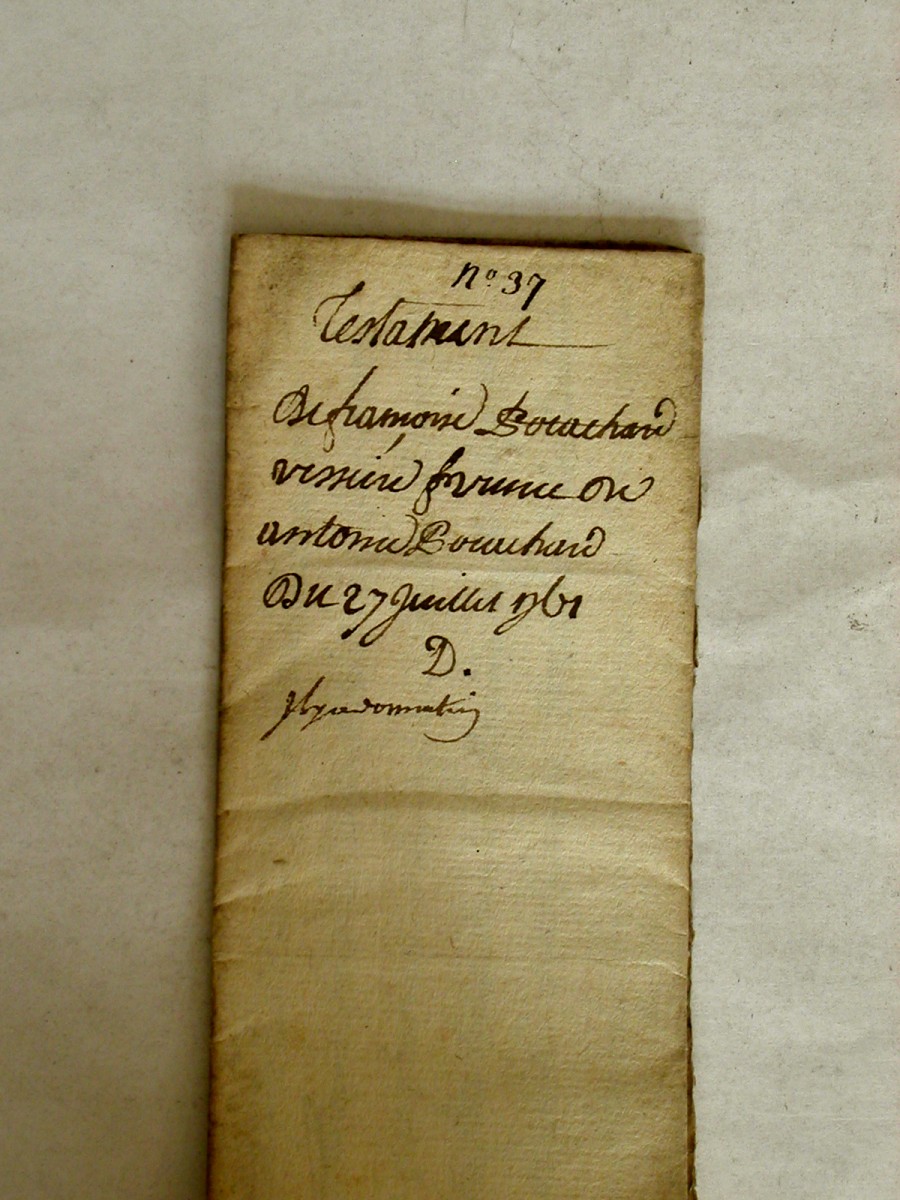 n.º 37
Testament
De françoise Bouchard
vessiere femme de
antoine Bouchard
Du 27 Juillet 1761
D.